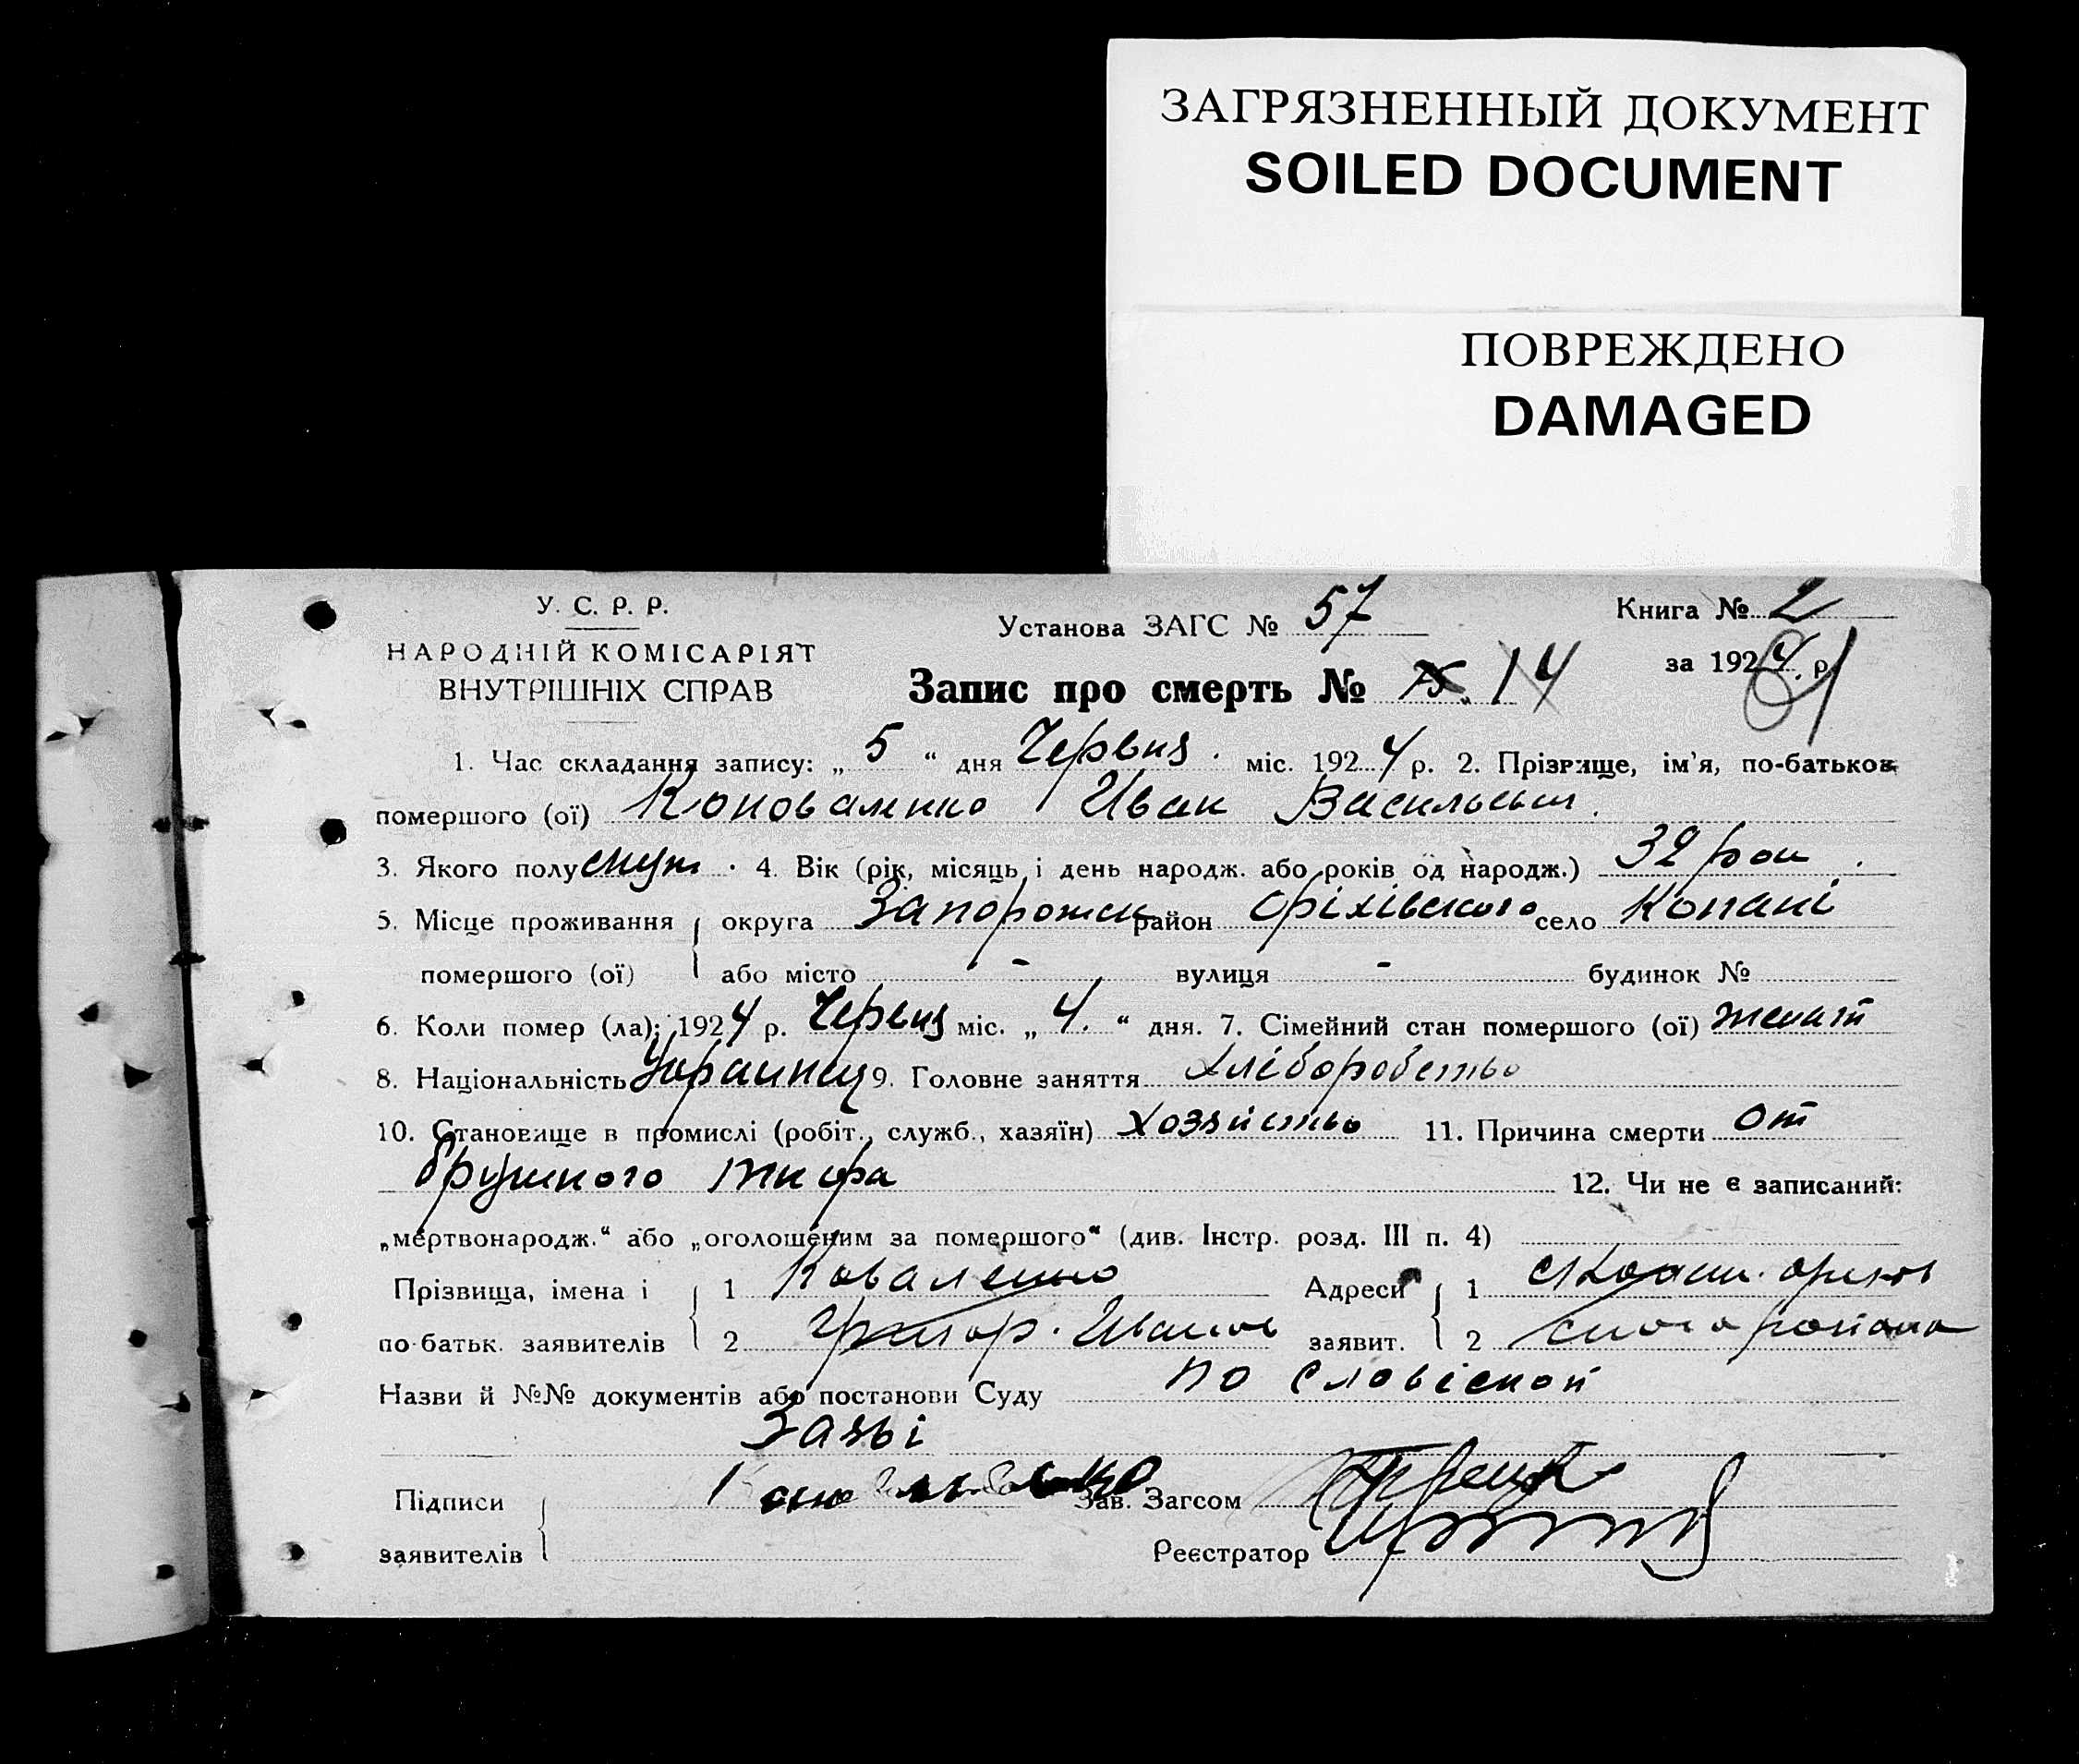 ЗАГРЯЗНЕННЫЙ ДОКУМЕНТ
SOILED DOCUMENT
ПОВРЕЖДЕНО
DAMAGED
У. С. Р. Р.
НАРОДНІЙ КОМІСАРІЯТ
ВНУТРІШНІХ СПРАВ
Установа ЗАГС № 57
Книга № 2
за 1924 р.
61
Запис про смерть № 14
1. Час складання запису: „ 5 “ дня Червня міс. 1924 р. 2. Прізвище, ім'я, по-батькові
помершого (ої) Коноваленко Иван Васильевич.
3. Якого полу муж. 4. Вік (рік, місяць і день народж. або років од народж.) 32 рок.
5. Місце проживання округа Запорожск район Оріхівского село Копані
помершого (ої) або місто - вулиця - будинок №
6. Коли помер (ла): 1924 р. Червня міс. „ 4. “ дня. 7. Сімейний стан помершого (ої) женат
8. Національність Украинец 9. Головне заняття хліборобство
10. Становище в промислі (робіт., служб., хазяїн) хозяйство 11. Причина смерти от
брушного тифа 12. Чи не є записаний:
„мертвонародж.“ або „оголошеним за помершого“ (див. Інстр. розд. III п. 4)
Прізвища, імена і 1 Коваленко Адреси 1
по-батьк. заявителів 2 Григор. Иванов заявит. 2 ского района
Назви й №№ документів або постанови Суду по словіской
Заяві
Підписи Зав. Загсом
заявителів Реєстратор